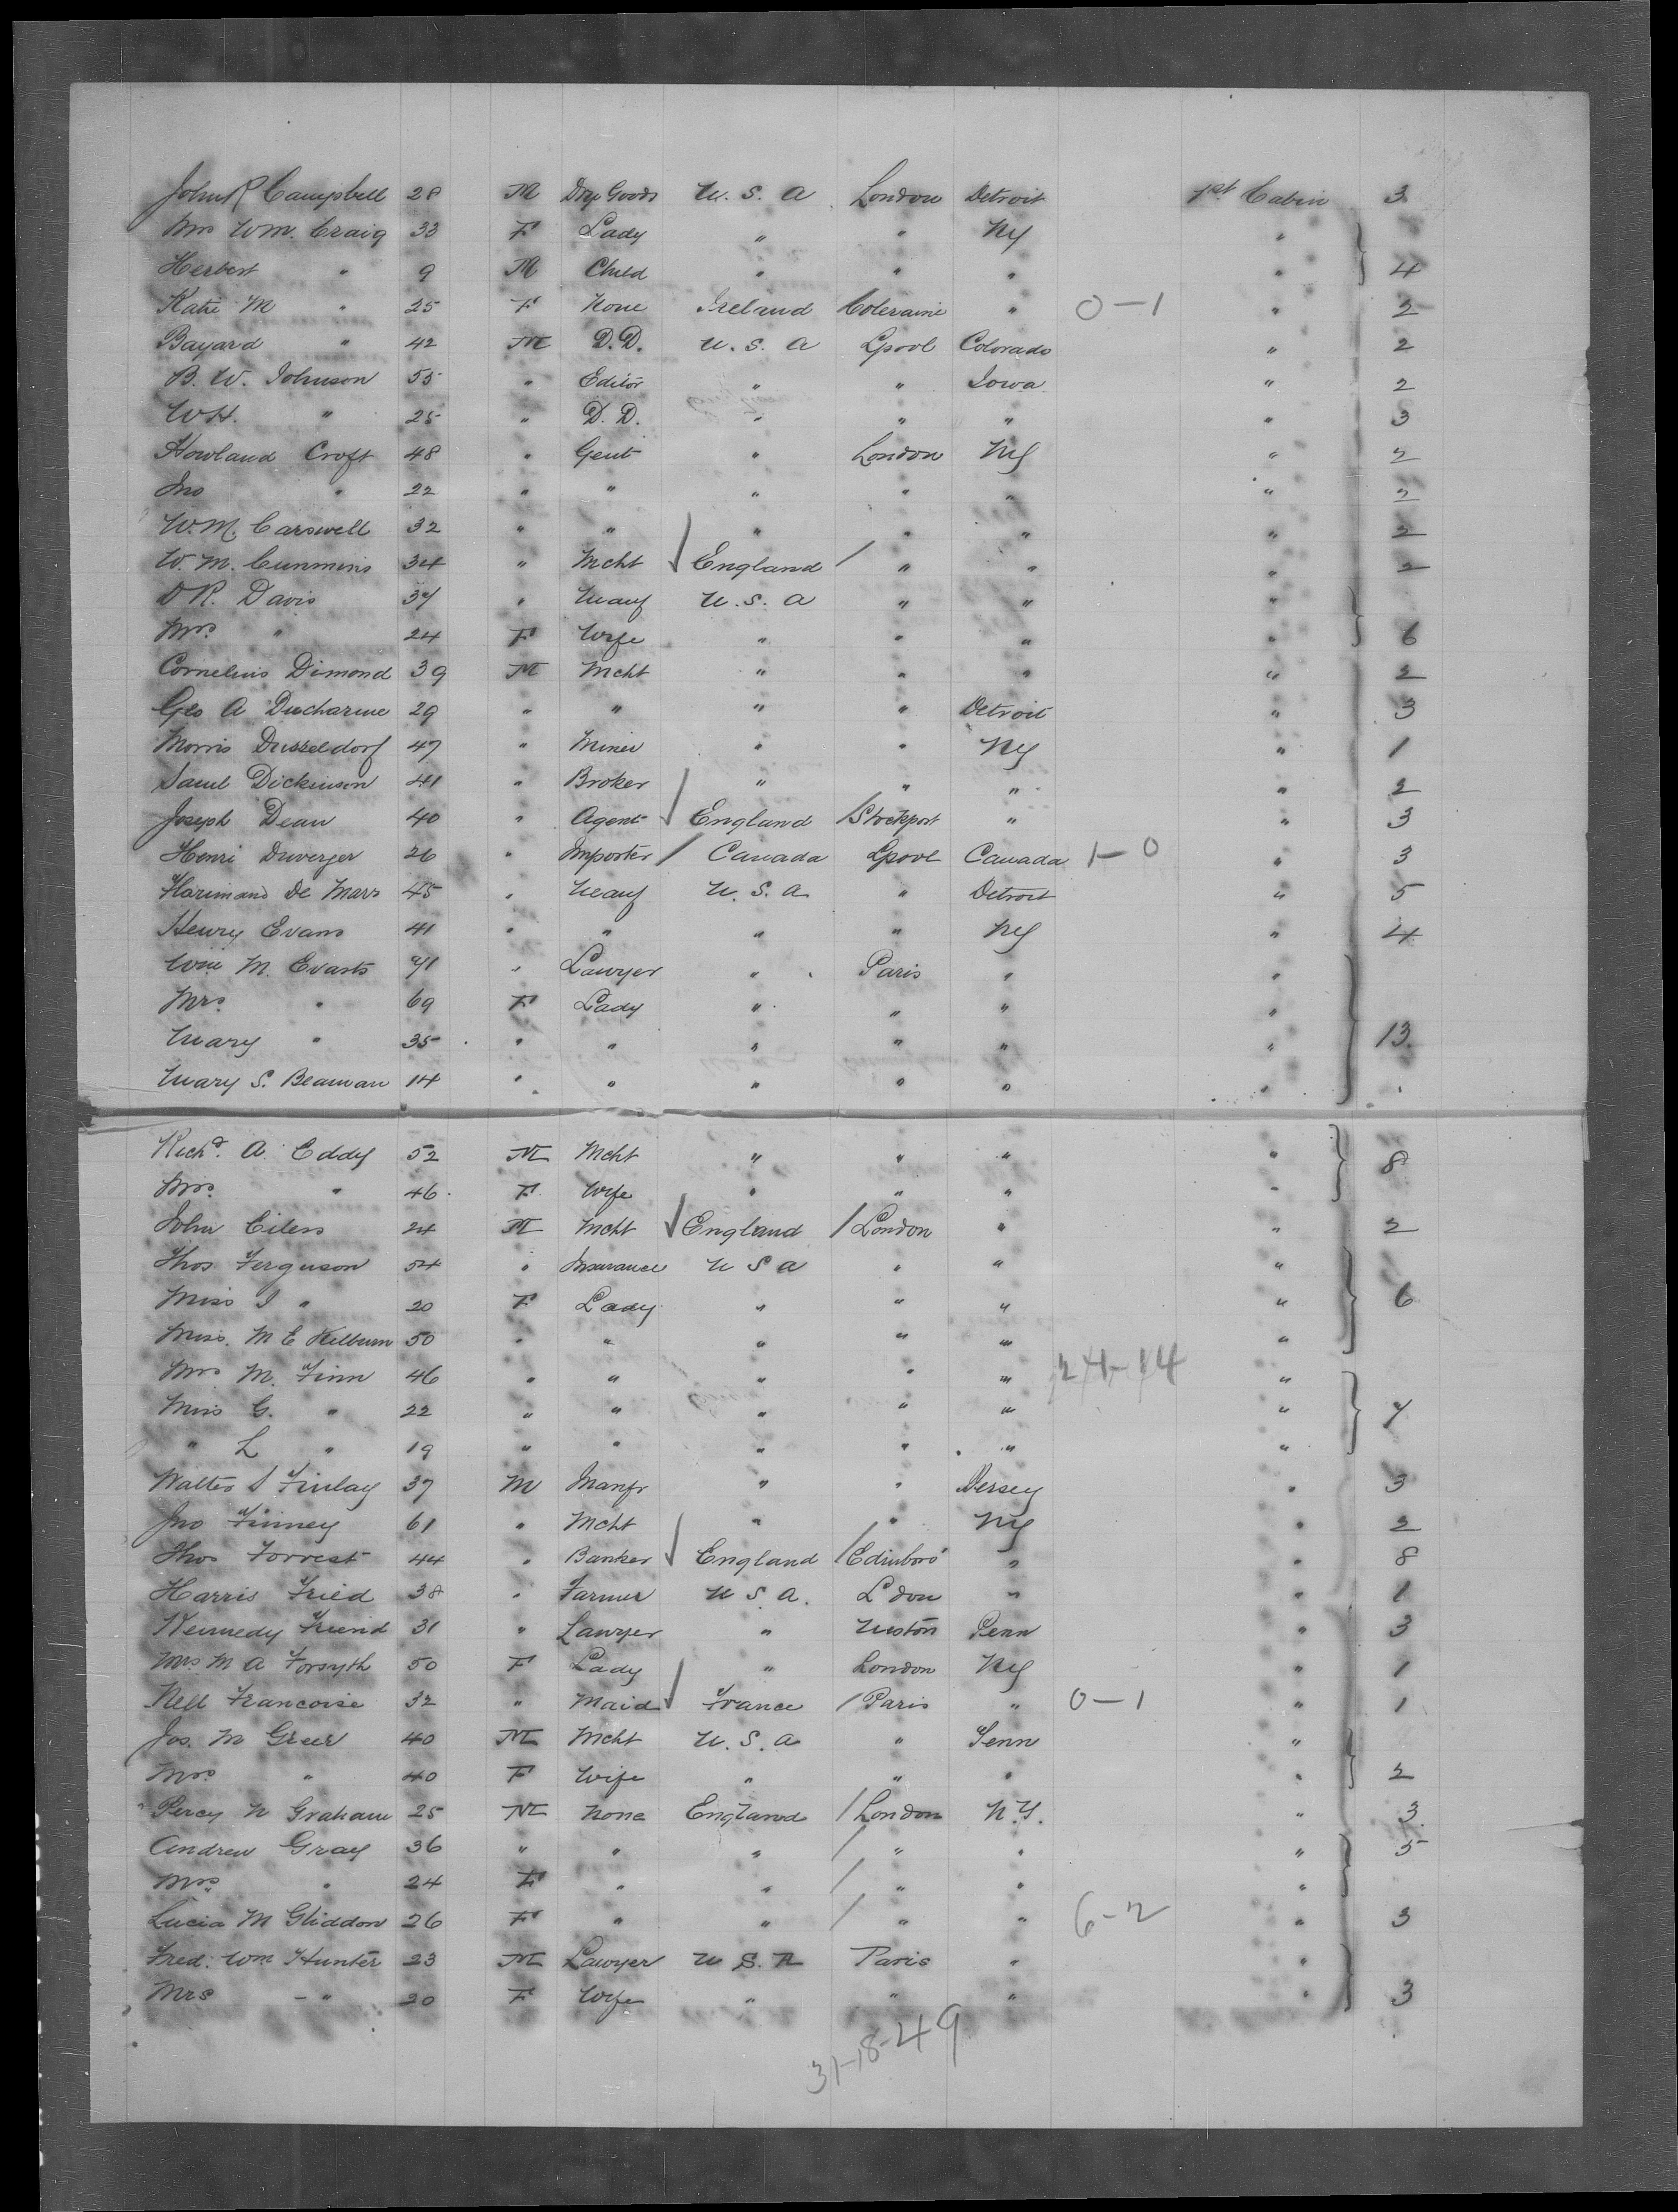 John R Campbell 28 M Dry Goods U.S.A London Detroit 1st Cabin 3
Mrs Wm. Craig 33 F Lady " " NY "
Herbert " 9 M Child " " " " 4
Katie M " 25 F None Ireland Coleraine " 0-1 " 2
Bayard " 42 M D.D. U.S.A Lpool Colorado " 2
B. W. Johnson 55 " Editor " " Iowa " 2
W H. " 25 " D.D. " " " " 3
Howland Croft 48 " Gent " London NY " 2
Jno " 22 " " " " " " 2
W. M. Carswell 32 " " " " " " 2
W. M. Cummins 34 " Mcht England " " " 2
D R. Davis 37 " Manf U.S.A " " "
Mrs. " 24 F Wife " " " " 6
Cornelius Dimond 39 M Mcht " " " " 2
Geo A Ducharme 29 " " " " Detroit " 3
Morris Dusseldorf 47 " Miner " " NY " 1
Saml Dickinson 41 " Broker " " " " 2
Joseph Dean 40 " Agent England Stockport " " 3
Henri Duverger 26 " Importer Canada Lpool Canada 1-0 " 3
De Mars 45 " Manf U.S.A " Detroit " 5
Henry Evans 41 " " " " NY " 4
Wm M. Evarts 71 " Lawyer " Paris " "
Mrs. " 69 F Lady " " " "
Mary " 35 " " " " " " 13
Mary S. Beaman 14 " " " " " "
Richd. A. Eddy 52 M Mcht " " " " 8
Mrs. " 46 F Wife " " " "
John Eilers 24 M Mcht England London " " 2
Thos Ferguson 54 " Insurance U S A " " "
Miss J " 20 F Lady " " " " 6
Miss. M E Kilburn 50 " " " " " "
Mrs M. Finn 46 " " " " " 24-14 "
Miss G. " 22 " " " " " " 7
" L " 19 " " " " " "
Walter S Finlay 37 M Manfr " " Jersey " 3
Jno Finney 61 " Mcht " " NY " 2
Thos Forrest 44 " Banker England Edinboro' " " 8
Harris Fried 38 " Farmer U.S.A. L'don " " 1
Kennedy Friend 31 " Lawyer " Penn " 3
Mrs M A Forsyth 50 F Lady " London NY " 1
Nell Francoise 32 " Maid France Paris " 0-1 " 1
Jos. M Greer 40 M Mcht U.S.A " Tenn "
Mrs. " 40 F Wife " " " " 2
Percy N Graham 25 M None England London N.Y. " 3
Andrew Gray 36 " " " " " " 5
Mrs. " 24 F " " " " "
Lucia M Gliddon 26 F " " " " 6-2 " 3
Fred. Wm Hunter 23 M Lawyer U S.A Paris " "
Mrs - " 20 F Wife " " " " 3
31-18-49